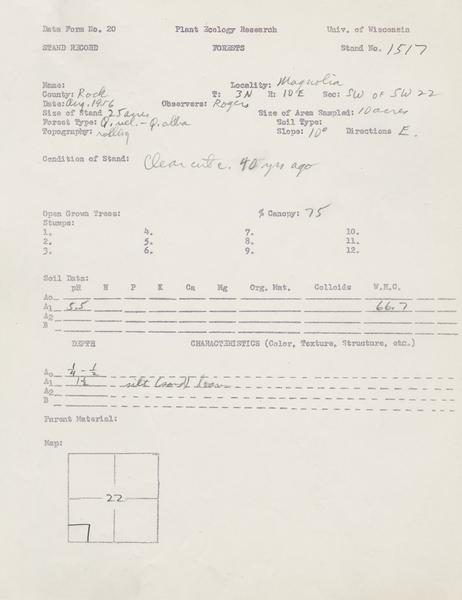 Data Form No. 20 Plant Ecology Research Univ. of Wisconsin
STAND RECORD FORESTS Stand No. 1517
Name: Locality: Magnolia
County: Rock T: 3N R: 10E Sec: SW OF SW 22
Date: Aug. 1956 Observers: Rogers
Size of Stand 25 acres Size of Area Sampled: 10 acres
Forest Type: Q. vel. - Q. alba Soil Type:
Topography: rolling Slope: 10° Directions E.
Condition of Stand: Clear cut c. 40 yrs ago
Open Grown Trees: % Canopy: 75
Stumps:
1. 4. 7. 10.
2. 5. 8. 11.
3. 6. 9. 12.
Soil Data:
pH N P K Ca Mg Org. Mat. Colloids W.H.C.
Ao
A1 5.5 66.7
A2
B
DEPTH CHARACTERISTICS (Color, Texture, Structure, etc.)
Ao 1/4 - 1/2
A1 1 1/2 silt loam
A2
B
Parent Material:
Map:
22